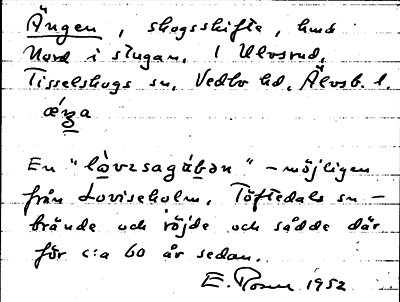 Ängen, skogsskifte, hmd
Nord i stugan. 1 Ulvsrud.
Tisselskogs sn. Vedbo hd. Älvsb. l.
En "lòvısagúbən" – möjligen
från Loviseholm, Töftedals sn –
brände och röjde och sådde där
för c:a 60 år sedan.
E. 1952